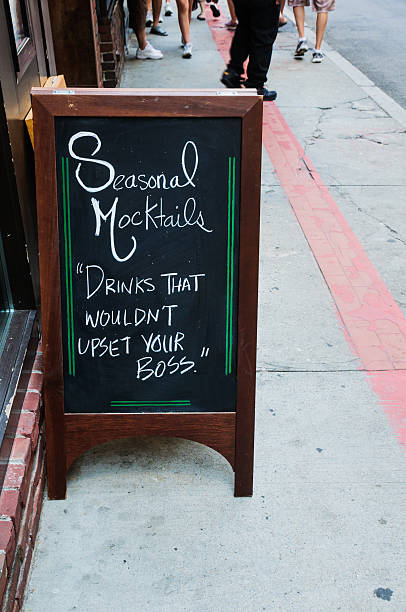 Seasonal
Mocktails
"DRINKS THAT
WOULDN'T
UPSET YOUR
BOSS."